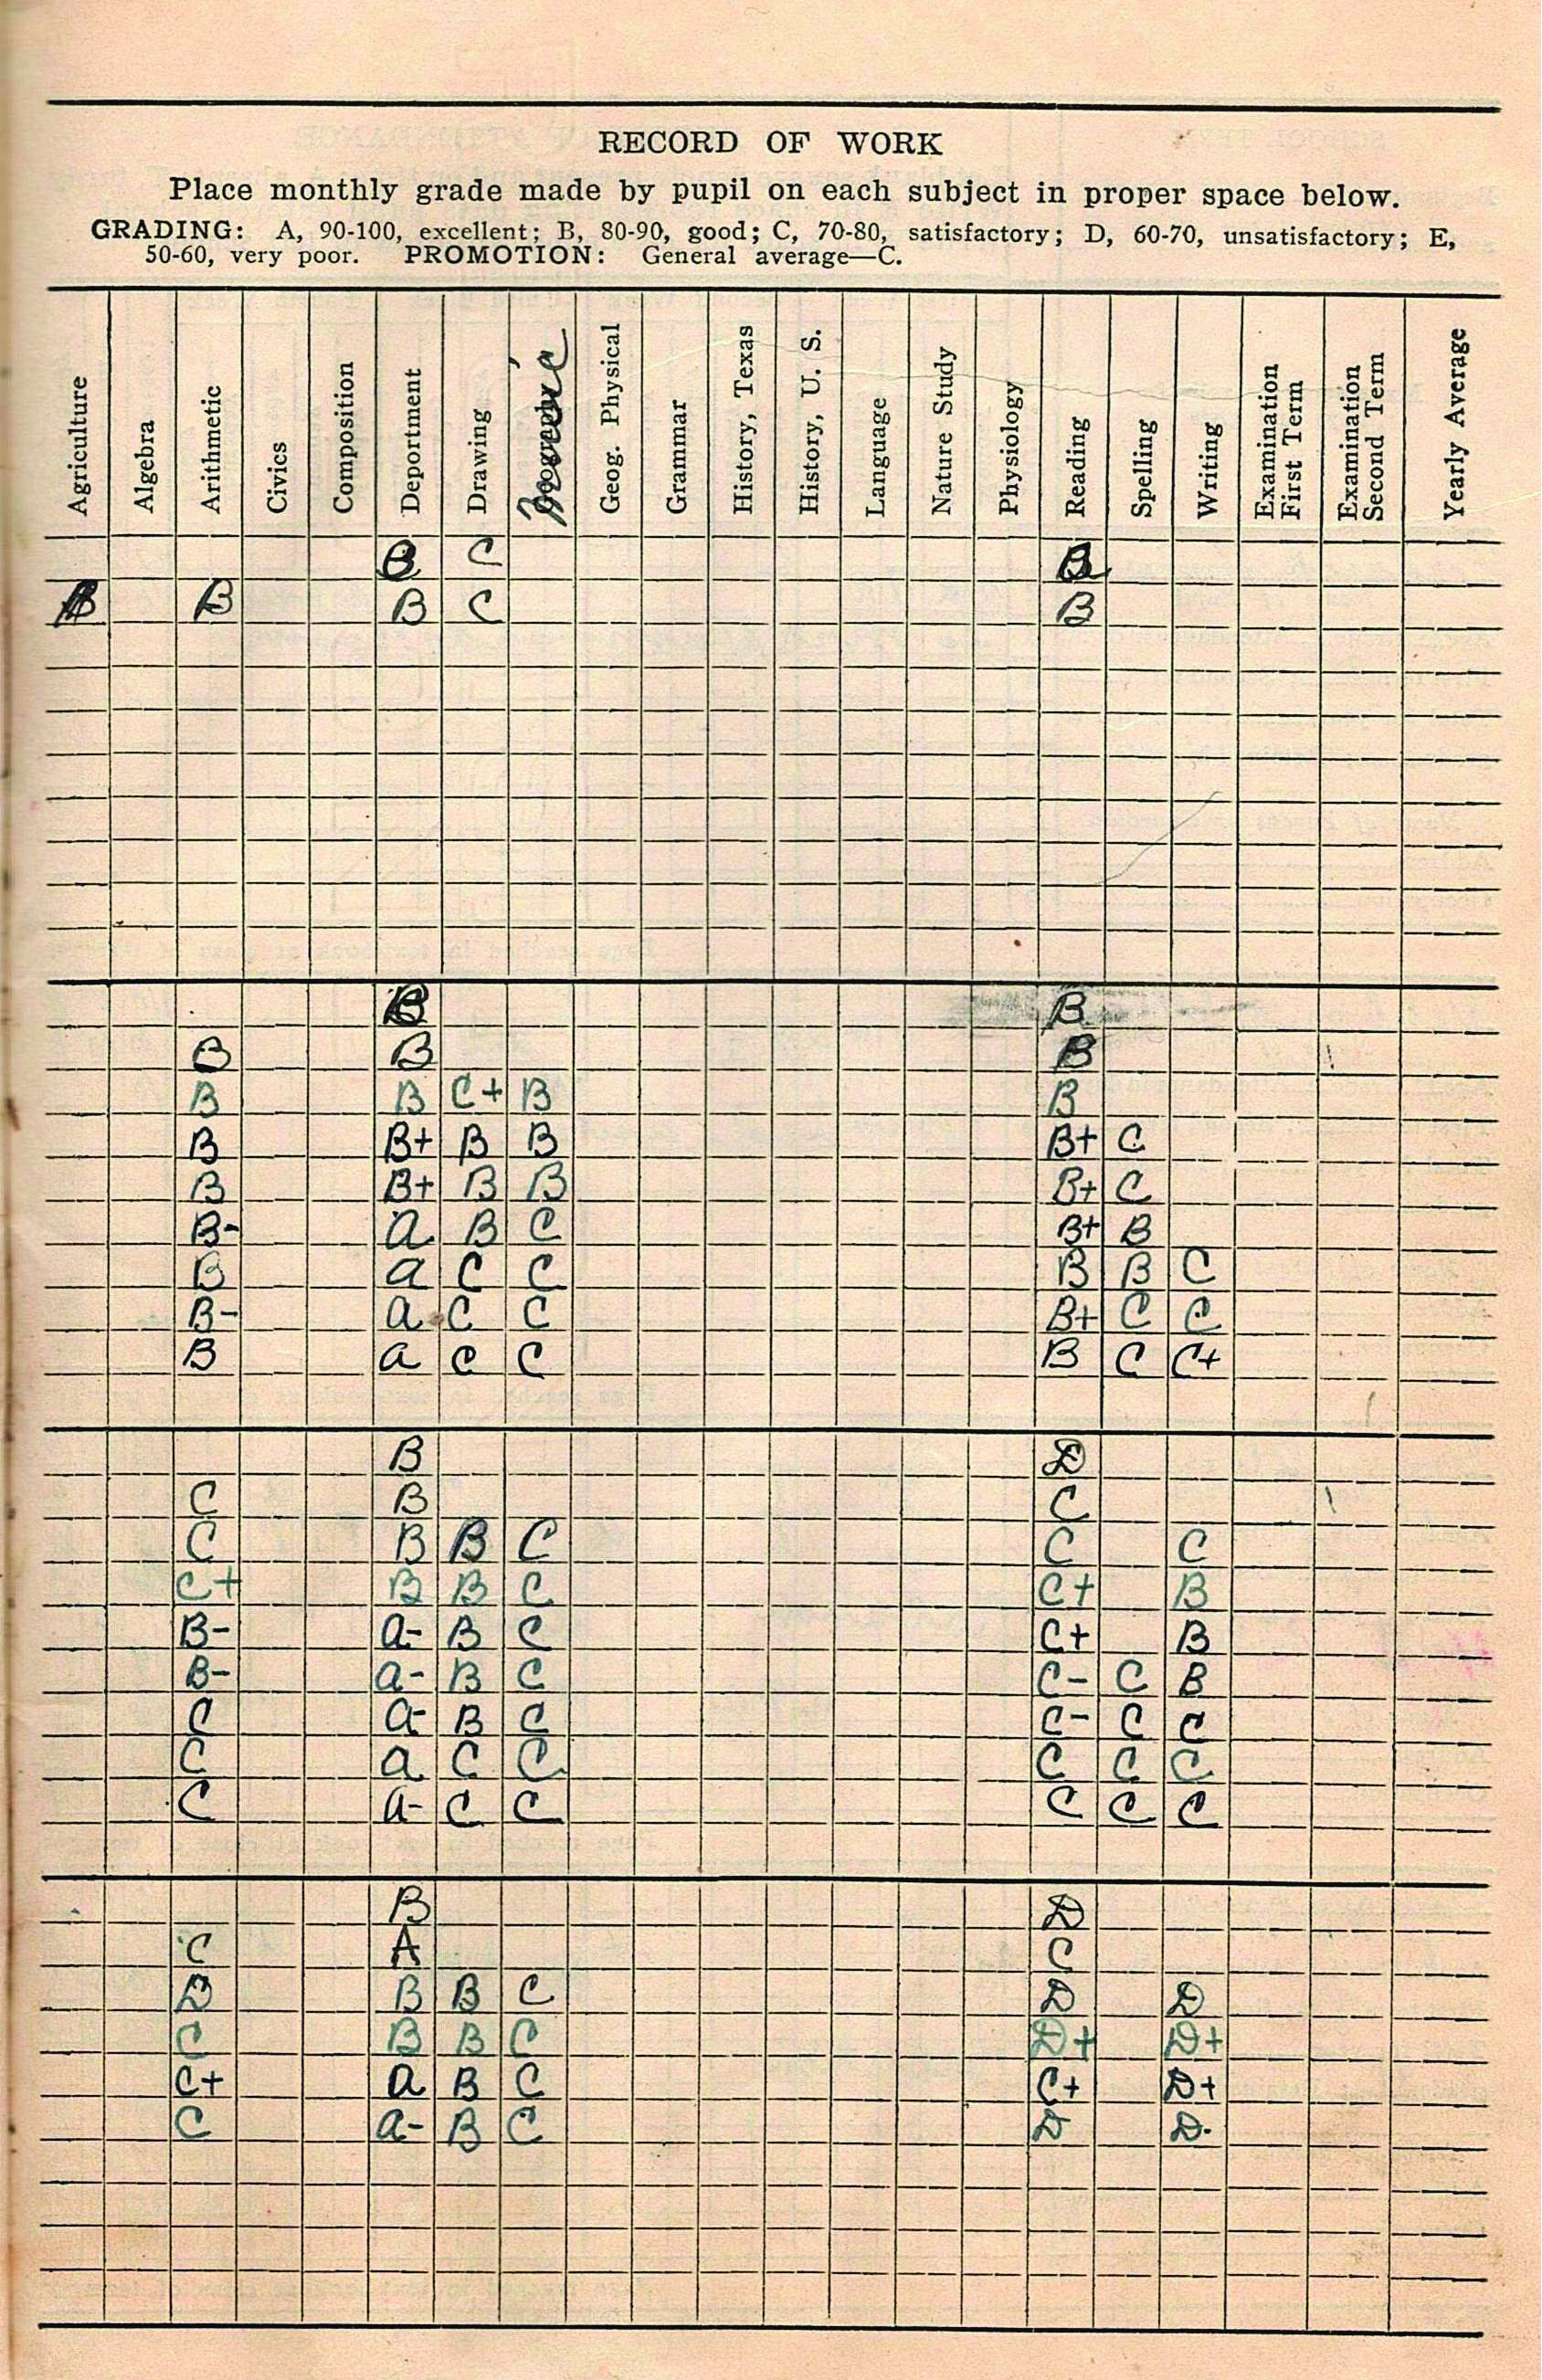 RECORD OF WORK
Place monthly grade made by pupil on each subject in proper space below.
GRADING: A, 90-100, excellent; B, 80-90, good; C, 70-80, satisfactory; D, 60-70, unsatisfactory; E,
50-60, very poor. PROMOTION: General average—C.
Agriculture Algebra Arithmetic Civics Composition Deportment Drawing Music Geog. Physical Grammar History, Texas History, U. S. Language Nature Study Physiology Reading Spelling Writing Examination First Term Examination Second Term Yearly Average
B C B
B B C B
B B
B B B
B B C+ B B
B B+ B B B+ C
B B+ B B B+ C
B- A B C B+ B
B a C C B B C
B- a C C B+ C C
B a C C B C C+
B D
C B C
C B B C C C
C+ B B C C+ B
B- a- B C C+ B
B- a- B C C- C B
C a- B C C- C C
C a C C C C C
C a- C C C C C
B D
C A C
D B B C D D
C B B C D+ D+
C+ a B C C+ D+
C a- B C D D-